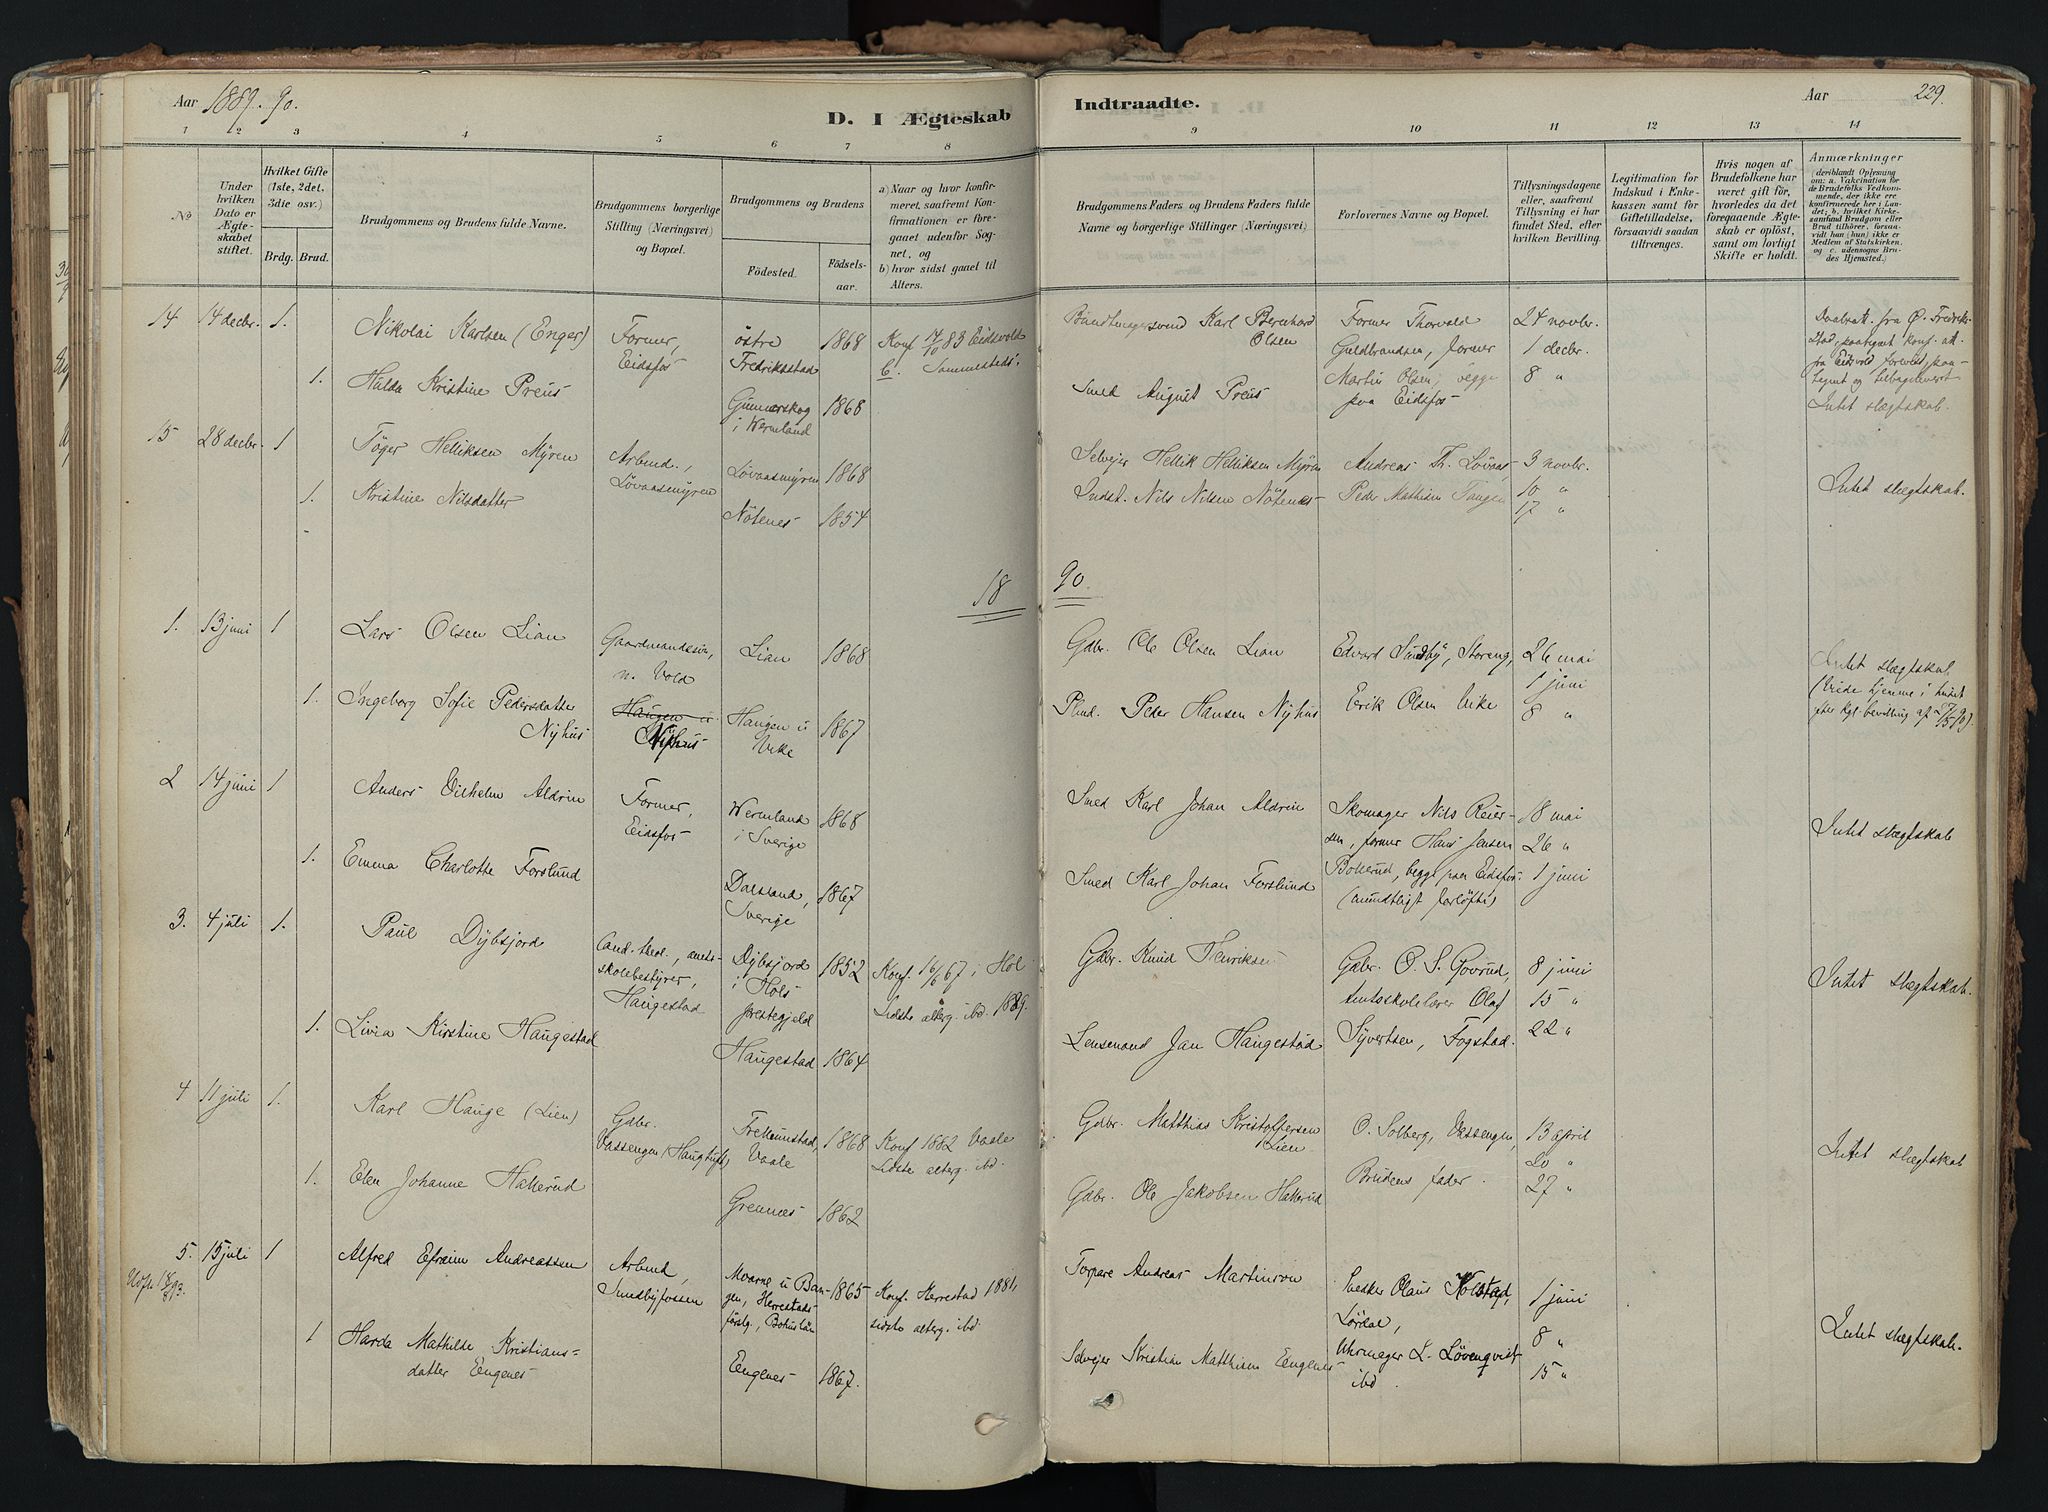 Aar 1889. 90.
D. I Ægteskab
Indtraadte.
Aar
229.
1 2 3 4 5 6 7 8
9 10 11 12 13 14
No
Under hvilken Dato er Ægteskabet stiftet.
Hvilket Gifte (1ste, 2det, 3die osv.)
Brdg. Brud.
Brudgommens og Brudens fulde Navne.
Brudgommens borgerlige Stilling (Næringsvei) og Bopæl.
Brudgommens og Brudens
Fødested.
Fødselsaar.
a) Naar og hvor konfirmeret, saafremt Konfirmationen er foregaaet udenfor Sognet, og
b) hvor sidst gaaet til Alters.
Brudgommens Faders og Brudens Faders fulde Navne og borgerlige Stillinger (Næringsvei)
Forlovernes Navne og Bopæl.
Tillysningsdagene eller, saafremt Tillysning ei har fundet Sted, efter hvilken Bevilling.
Legitimation for Indskud i Enkekassen samt for Giftetilladelse, forsaavidt saadan tiltrænges.
Hvis nogen af Brudefolkene har været gift før, hvorledes da det foregaaende Ægteskab er opløst, samt om lovligt Skifte er holdt.
Anmærkninger
(deriblandt Oplysning om: a. Vakcination for de Brudefolks Vedkommende, der ikke ere konfirmerede her i Landet; b. hvilket Kirkesamfund Brudgom eller Brud tilhører, forsaavidt han (hun) ikke er Medlem af Statskirken, og c. udensogns Brudes Hjemsted.)
14 14 decbr. 1. Nikolai Karlsen (Enger) Former, Eidsfos östre Fredriksstad 1868 Konf 14/10 83 Eidsvold
b. Sammesteds.
Karl Bernhard Olsen
Former Thorvald Guldbrandsen, former Martin Olsen, begge paa Eidsfos
24 novbr.
1 decbr.
8 "
1. Hulda Kristine Preus Gunnarskog i Wermland 1868
Smed August Preus
Intet slægtskab.
15 28 decbr. 1 Töger Helliksen Mÿren Arbmd., Lövaasmÿren Lövaasmÿren 1868
Selveier Hellik Helliksen Mÿren Andreas Th. Lövaas 3 novbr.
1. Kristine Nilsdatter Nötenes 1854
Indst. Nils Nilsen Nötenes Peder Mathisen Tangen 10 "
17 "
Intet slægtskab.
18 90.
1. 13 juni 1 Lars Olsen Lian Gaardmandssön, n. Vold Lian 1868
Gdbr. Ole Olsen Lian Edvard Sundbÿ, Storeng, 26 mai
1 juni
8 "
1. Ingeborg Sofie Pedersdatter Nÿhus Haugen u Nÿhus Haugen u Vike 1867
Plmd. Peder Hansen Nÿhus Erik Olsen Vike
Intet slægtskab
(Viede hjemme i huset efter kgl. bevilling af 27/5 90)
2 14 juni 1 Anders Vilhelm Aldrin Former, Eidsfos Wermland i Sverige 1868
Smed Karl Johan Aldrin Skomager Nils Reiersen, former Hans Jensen Bokerud, begge paa Eidsfos
(mundtligt forløfte)
18 mai
26 "
1 juni
1. Emma Charlotte Forslund Dalsland, Sverige 1867
Smed Karl Johan Forslund
Intet slægtskab
3. 4 juli 1. Paul Dÿbsjord Cand. theol., amtsskolebestyrer, Haugestad Dÿbsjord i Hols prestegjeld 1852 Konf. 16/6 67 i Hol
Sidste alterg. ibd. 1889.
Gdbr. Knud Henriksen Gdbr. O. S. Govrud, Amtsskolelærer Olaf Sÿvertsen, Fogstad.
8 juni
15 "
22 "
1. Livia Kirstine Haugestad Haugestad 1864
Lensmand Jan Haugestad
Intet slægtskab.
4 11 juli 1. Karl Hauge (Lien) Gdbr. Vassengen (Haugtuft) Trekumstad, Vaale 1868 Konf 1882 Vaale
Sidste alterg. ibd.
Gdbr. Matthias Kristoffersen Lien O. Solberg, Vassengen, 13 april
20 "
27 "
1. Elen Johanne Hakerud Grennes 1862
Gdbr. Ole Jakobsen Hakerud Brudens fader.
Intet slægtskab
5. 15 juli 1 Alfred Efraim Andreassen Arbmd, Sundbÿfossen Moarne u Bangen, Herrestads förslg., Bohuslän 1865 Konf. Herrestad 1881, sidste alterg. ibd.
Udfl. 18/8 93.
Torpare Andreas Martinson Snekker Olaus Kolstad, Lördal, 1 juni
8 "
15 "
1 Harda Mathilde Kristiansdatter Eengenes Eengenes 1867.
Selvejer Kristian Matthisen Eengenes Uhrmager L. Lövenqvist ibd.
Intet slægtskab.